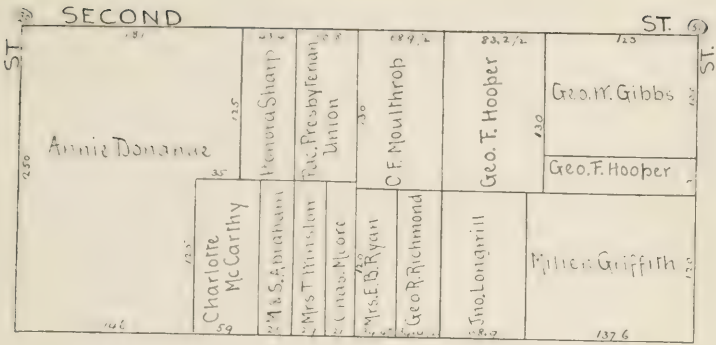 SECOND ST.
ST.
ST.
125
Annie Donahue
250
125
35
Honora Sharp
Pac. Presbyterian
Union
130
C.F. Moulthrop
83.2½
Geo. F. Hooper
130
125
Geo. W. Gibbs
Geo. F. Hooper
125
Charlotte
McCarthy
59
M & S. Abraham
Mrs T Winston
Chas. Moore
120
Mrs. E.B. Ryan
Geo R. Richmond
Jno. Longmill
Griffith
120
137 6